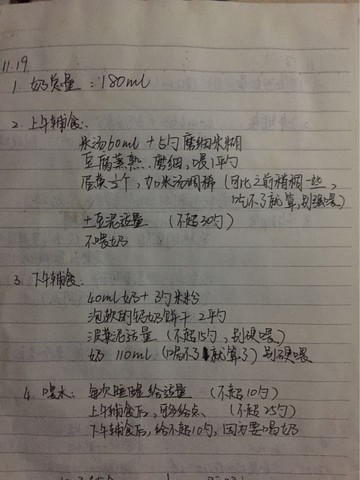 11.19
1. 奶总量：180ml
2. 上午辅食：
米汤60ml + 5勺磨细米糊
豆腐蒸熟、磨细，喂1平勺
蛋黄 个，加米汤调稀（可比之前稍稠一些，
吃不了就算，别强喂）
土豆泥适量（不超30勺）
不喂奶
3. 下午辅食：
40ml奶 + 3勺米粉
泡软的 奶饼干 2平勺
菠菜泥适量（不超15勺，别硬喂）
奶 110ml（喝不了就算了）别硬喂
4. 喂水：每次睡醒给适量（不超10勺）
上午辅食后，可多给点、（不超25勺）
下午辅食后，给不超10勺，因为要喝奶